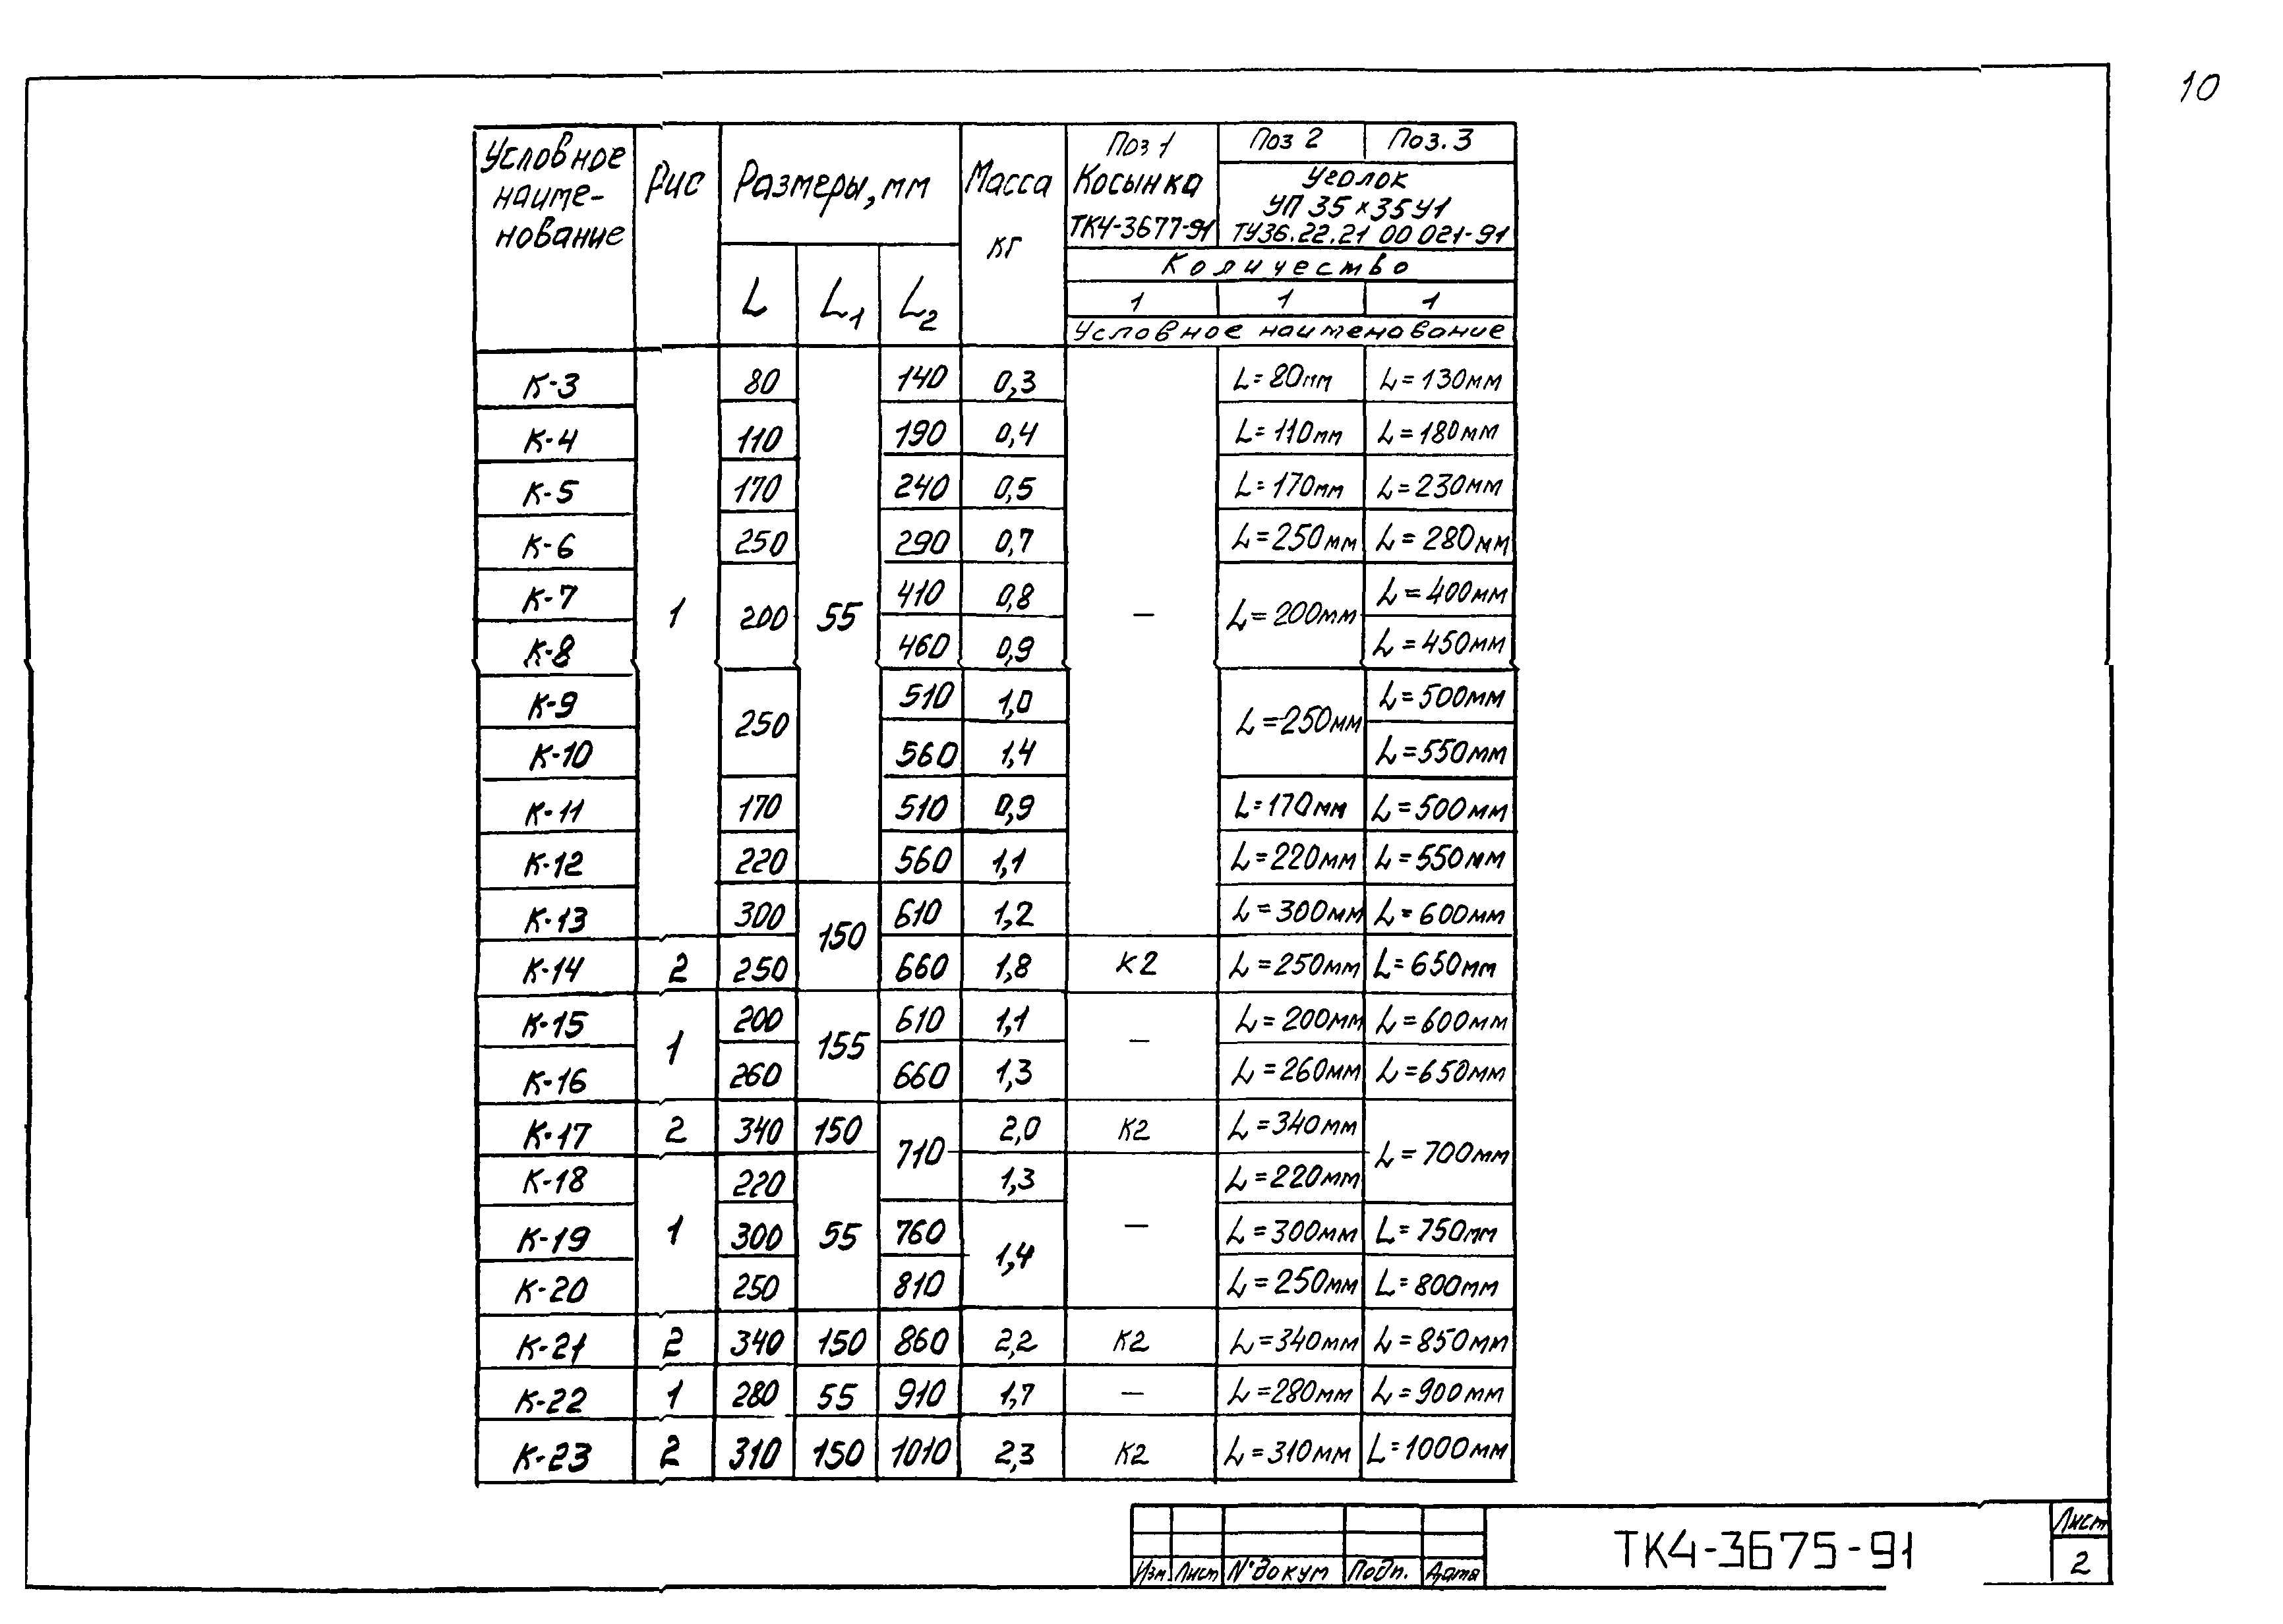 10
Условное наиме- нование | Рис | Размеры, мм | Масса кг | Поз 1 Косынка ТК4-3677-91 | Поз 2 | Поз. 3
Уголок
УП 35×35У1
ТУ36.22.21 00 021-91
L | L1 | L2
Количество
1 | 1 | 1
Условное наименование
К-3 | 1 | 80 | 55 | 140 | 0,3 | — | L=80мм | L=130мм
К-4 | 110 | 190 | 0,4 | L=110мм | L=180мм
К-5 | 170 | 240 | 0,5 | L=170мм | L=230мм
К-6 | 250 | 290 | 0,7 | L=250мм | L=280мм
К-7 | 200 | 410 | 0,8 | L=200мм | L=400мм
К-8 | 460 | 0,9 | L=450мм
К-9 | 250 | 510 | 1,0 | L=250мм | L=500мм
К-10 | 560 | 1,4 | L=550мм
К-11 | 170 | 510 | 0,9 | L=170мм | L=500мм
К-12 | 220 | 560 | 1,1 | L=220мм | L=550мм
К-13 | 300 | 150 | 610 | 1,2 | L=300мм | L=600мм
К-14 | 2 | 250 | 660 | 1,8 | К2 | L=250мм | L=650мм
К-15 | 1 | 200 | 155 | 610 | 1,1 | — | L=200мм | L=600мм
К-16 | 260 | 660 | 1,3 | L=260мм | L=650мм
К-17 | 2 | 340 | 150 | 710 | 2,0 | К2 | L=340мм | L=700мм
К-18 | 1 | 220 | 55 | 1,3 | — | L=220мм
К-19 | 300 | 760 | 1,4 | L=300мм | L=750мм
К-20 | 250 | 810 | L=250мм | L=800мм
К-21 | 2 | 340 | 150 | 860 | 2,2 | К2 | L=340мм | L=850мм
К-22 | 1 | 280 | 55 | 910 | 1,7 | — | L=280мм | L=900мм
К-23 | 2 | 310 | 150 | 1010 | 2,3 | К2 | L=310мм | L=1000мм
Изм. Лист №докум Подп. Дата
ТК4-3675-91
Лист
2